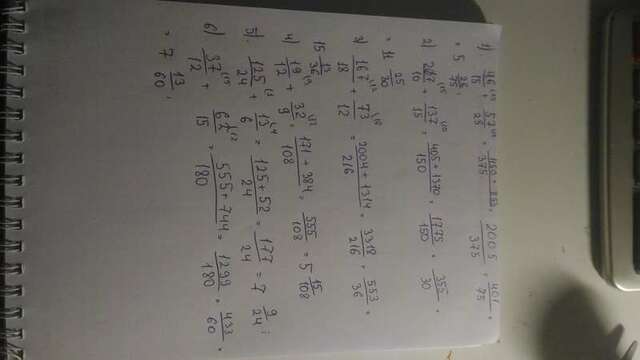 1) 46/15 + 57/25 = 1150 + 855/375 = 2005/375 = 401/75 =
= 5 26/75.
2) 27/10 + 137/15 = 405 + 1370/150 = 1775/150 = 355/30 =
= 11 25/30
3) 167/18 + 73/12 = 2004 + 1314/216 = 3318/216 = 553/36 =
15 13/36
4) 19/12 + 32/9 = 171 + 384/108 = 555/108 = 5 15/108
5) 125/24 + 13/6 = 125 + 52/24 = 177/24 = 7 9/24;
6) 37/12 + 62/15 = 555 + 744/180 = 1299/180 = 433/60 =
= 7 13/60.